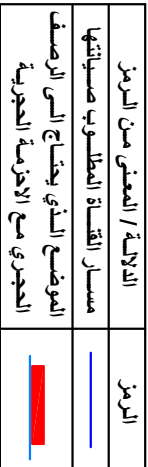 الرمز
الدلالة / المعنى من الرمز
مسار القناة المطلوب صيانتها
الموضع الذي يحتاج الى الرصف
الحجري مع الاحزمة الحجرية